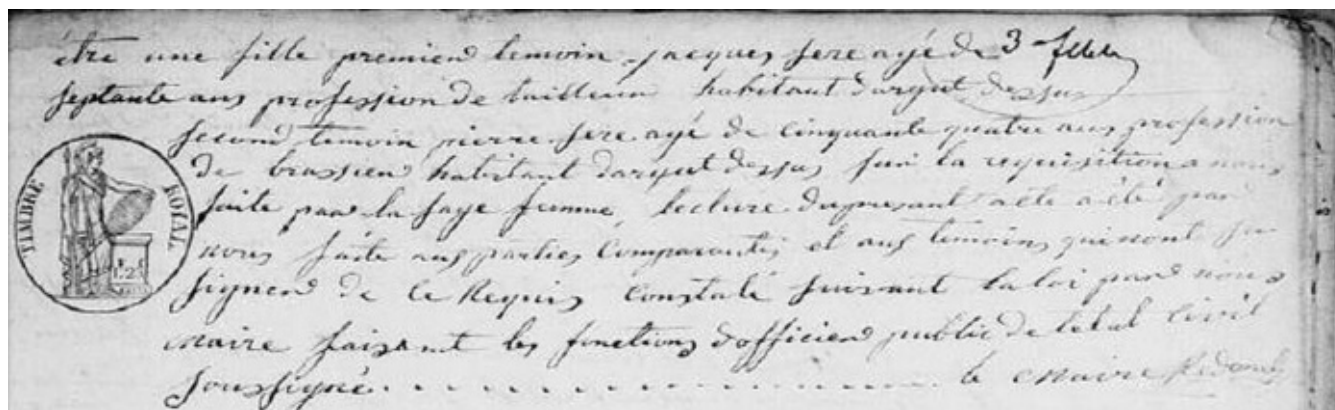 être une fille premier temoin jacques sere agé de 3 fllets
septante ans profession de tailleur habitant dargut dessus
second temoin pierre sere agé de cinquante quatre ans profession
de brassier habitant dargut dessus sur la requisition a nous
faite par la sage femme, lecture du present acte a été par
nous faite aux parties comparantes et aux temoins qui nont su
signer de ce Requis constaté suivant la loi par nous
maire faisant les fonctions dofficier public de letat civil
soussigné. le Maire
TIMBRE ROYAL
1.25